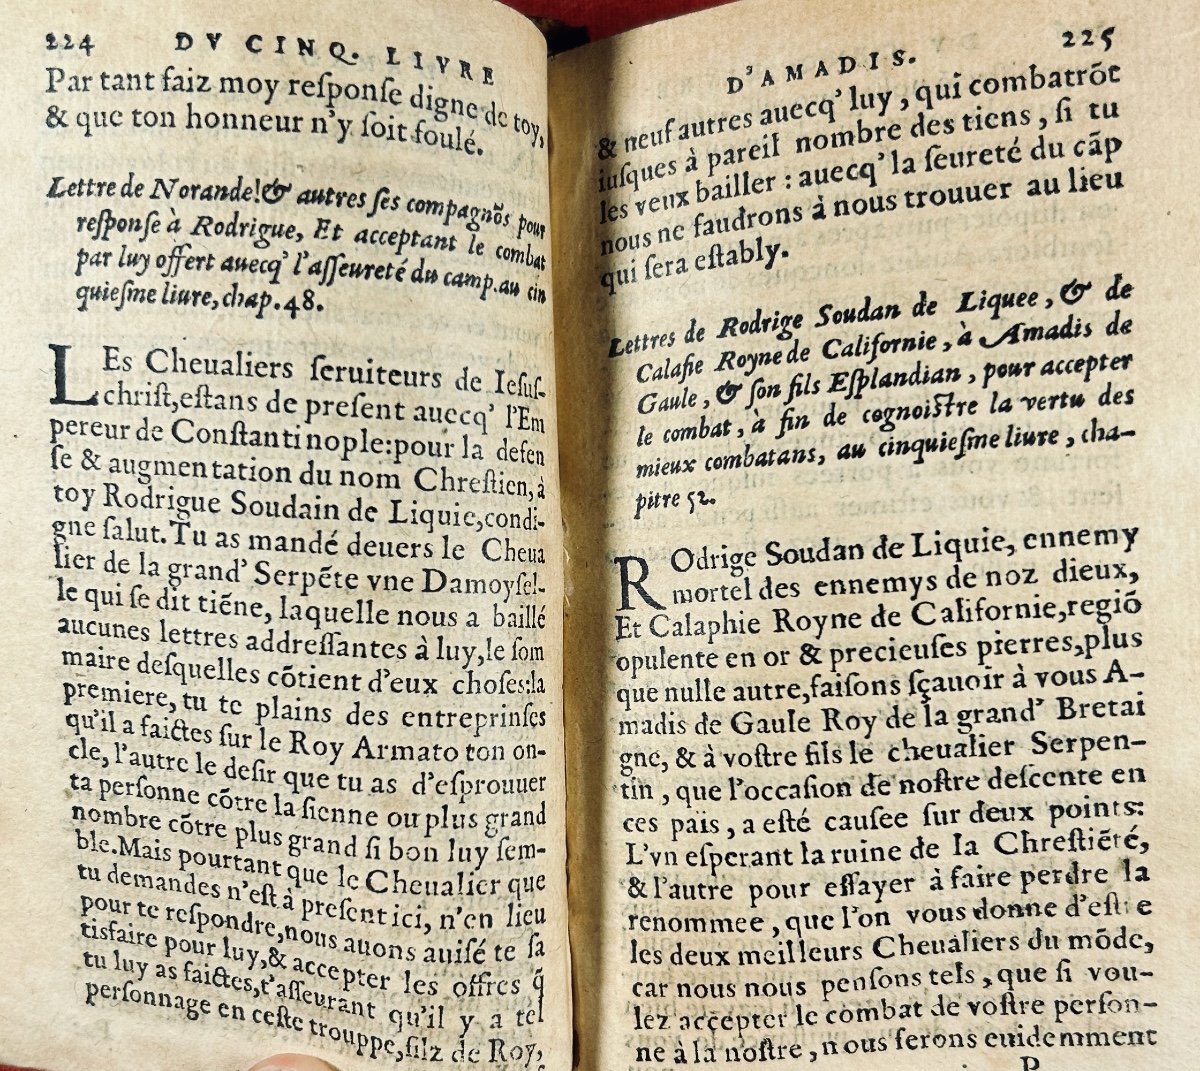 224 DV CINQ. LIVRE
Par tant faiz moy reſponſe digne de toy,
& que ton honneur n'y ſoit foulé.
Lettre de Norandel & autres ſes compagnõs pour
reſponſe à Rodrigue, Et acceptant le combat
par luy offert auecq' l'aſſeureté du camp. au cin
quieſme liure, chap. 48.
LEs Cheualiers ſeruiteurs de Ieſuſ-
chriſt, eſtans de preſent auecq' l'Em
pereur de Conſtantinople: pour la defen
ſe & augmentation du nom Chreſtien, à
toy Rodrigue Soudain de Liquie, condi-
gne ſalut. Tu as mandé deuers le Cheua
lier de la grand' Serpẽte vne Damoyſel-
le qui ſe dit tiẽne, laquelle nous a baillé
aucunes lettres addreſſantes à luy, le ſom
maire deſquelles cõtient d'eux choſes: la
premiere, tu te plains des entreprinſes
qu'il a faictes ſur le Roy Armato ton on-
cle, l'autre le deſir que tu as d'eſprouuer
ta perſonne cõtre la ſienne ou plus grand
nombre cõtre plus grand ſi bon luy ſem-
ble. Mais pourtant que le Cheualier que
tu demandes n'eſt à preſent ici, n'en lieu
pour te reſpondre, nous auons auiſé te ſa
tisfaire pour luy, & accepter les offres q̃
tu luy as faictes, t'aſſeurant qu'il y a tel
perſonnage en ceſte trouppe, filz de Roy,
D'AMADIS. 225
& neuf autres auecq' luy, qui combatrõt
iuſques à pareil nombre des tiens, ſi tu
les veux bailler: auecq' la ſeureté du cãp
nous ne faudrons à nous trouuer au lieu
qui ſera eſtably.
Lettres de Rodrige Soudan de Liquee, & de
Calafie Royne de Californie, à Amadis de
Gaule, & ſon fils Eſplandian, pour accepter
le combat, à fin de cognoiſtre la vertu des
mieux combatans, au cinquieſme liure, cha-
pitre 52.
ROdrige Soudan de Liquie, ennemy
mortel des ennemys de noz dieux,
Et Calaphie Royne de Californie, regiõ
opulente en or & precieuſes pierres, plus
que nulle autre, faiſons ſçauoir à vous A-
madis de Gaule Roy de la grand' Bretai
gne, & à voſtre fils le cheualier Serpen-
tin, que l'occaſion de noſtre deſcente en
ces païs, a eſté cauſee ſur deux points:
L'vn eſperant la ruine de la Chreſtiẽté,
& l'autre pour eſſayer à faire perdre la
renommee, que l'on vous donne d'eſtre
les deux meilleurs Cheualiers du mõde,
car nous nous penſons tels, que ſi vou-
lez accepter le combat de voſtre perſon-
ne à la noſtre, nous ferons euidemment
P